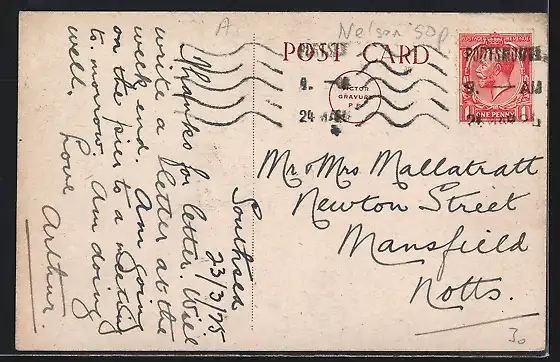 A
Nelson 50p
POST CARD
VICTOR
GRAVURE
POSTAGE
ONE PENNY
PORTSMOUTH
9. — AM
24 MAR
Southsea
23/3/25.
Thanks for letter. Will
write a letter at the
week end. Am going
on the pier to a meeting
to-morrow. Am doing
well.
Love
Arthur.
Mr & Mrs Mallatratt
Newton Street
Mansfield
Notts.
30